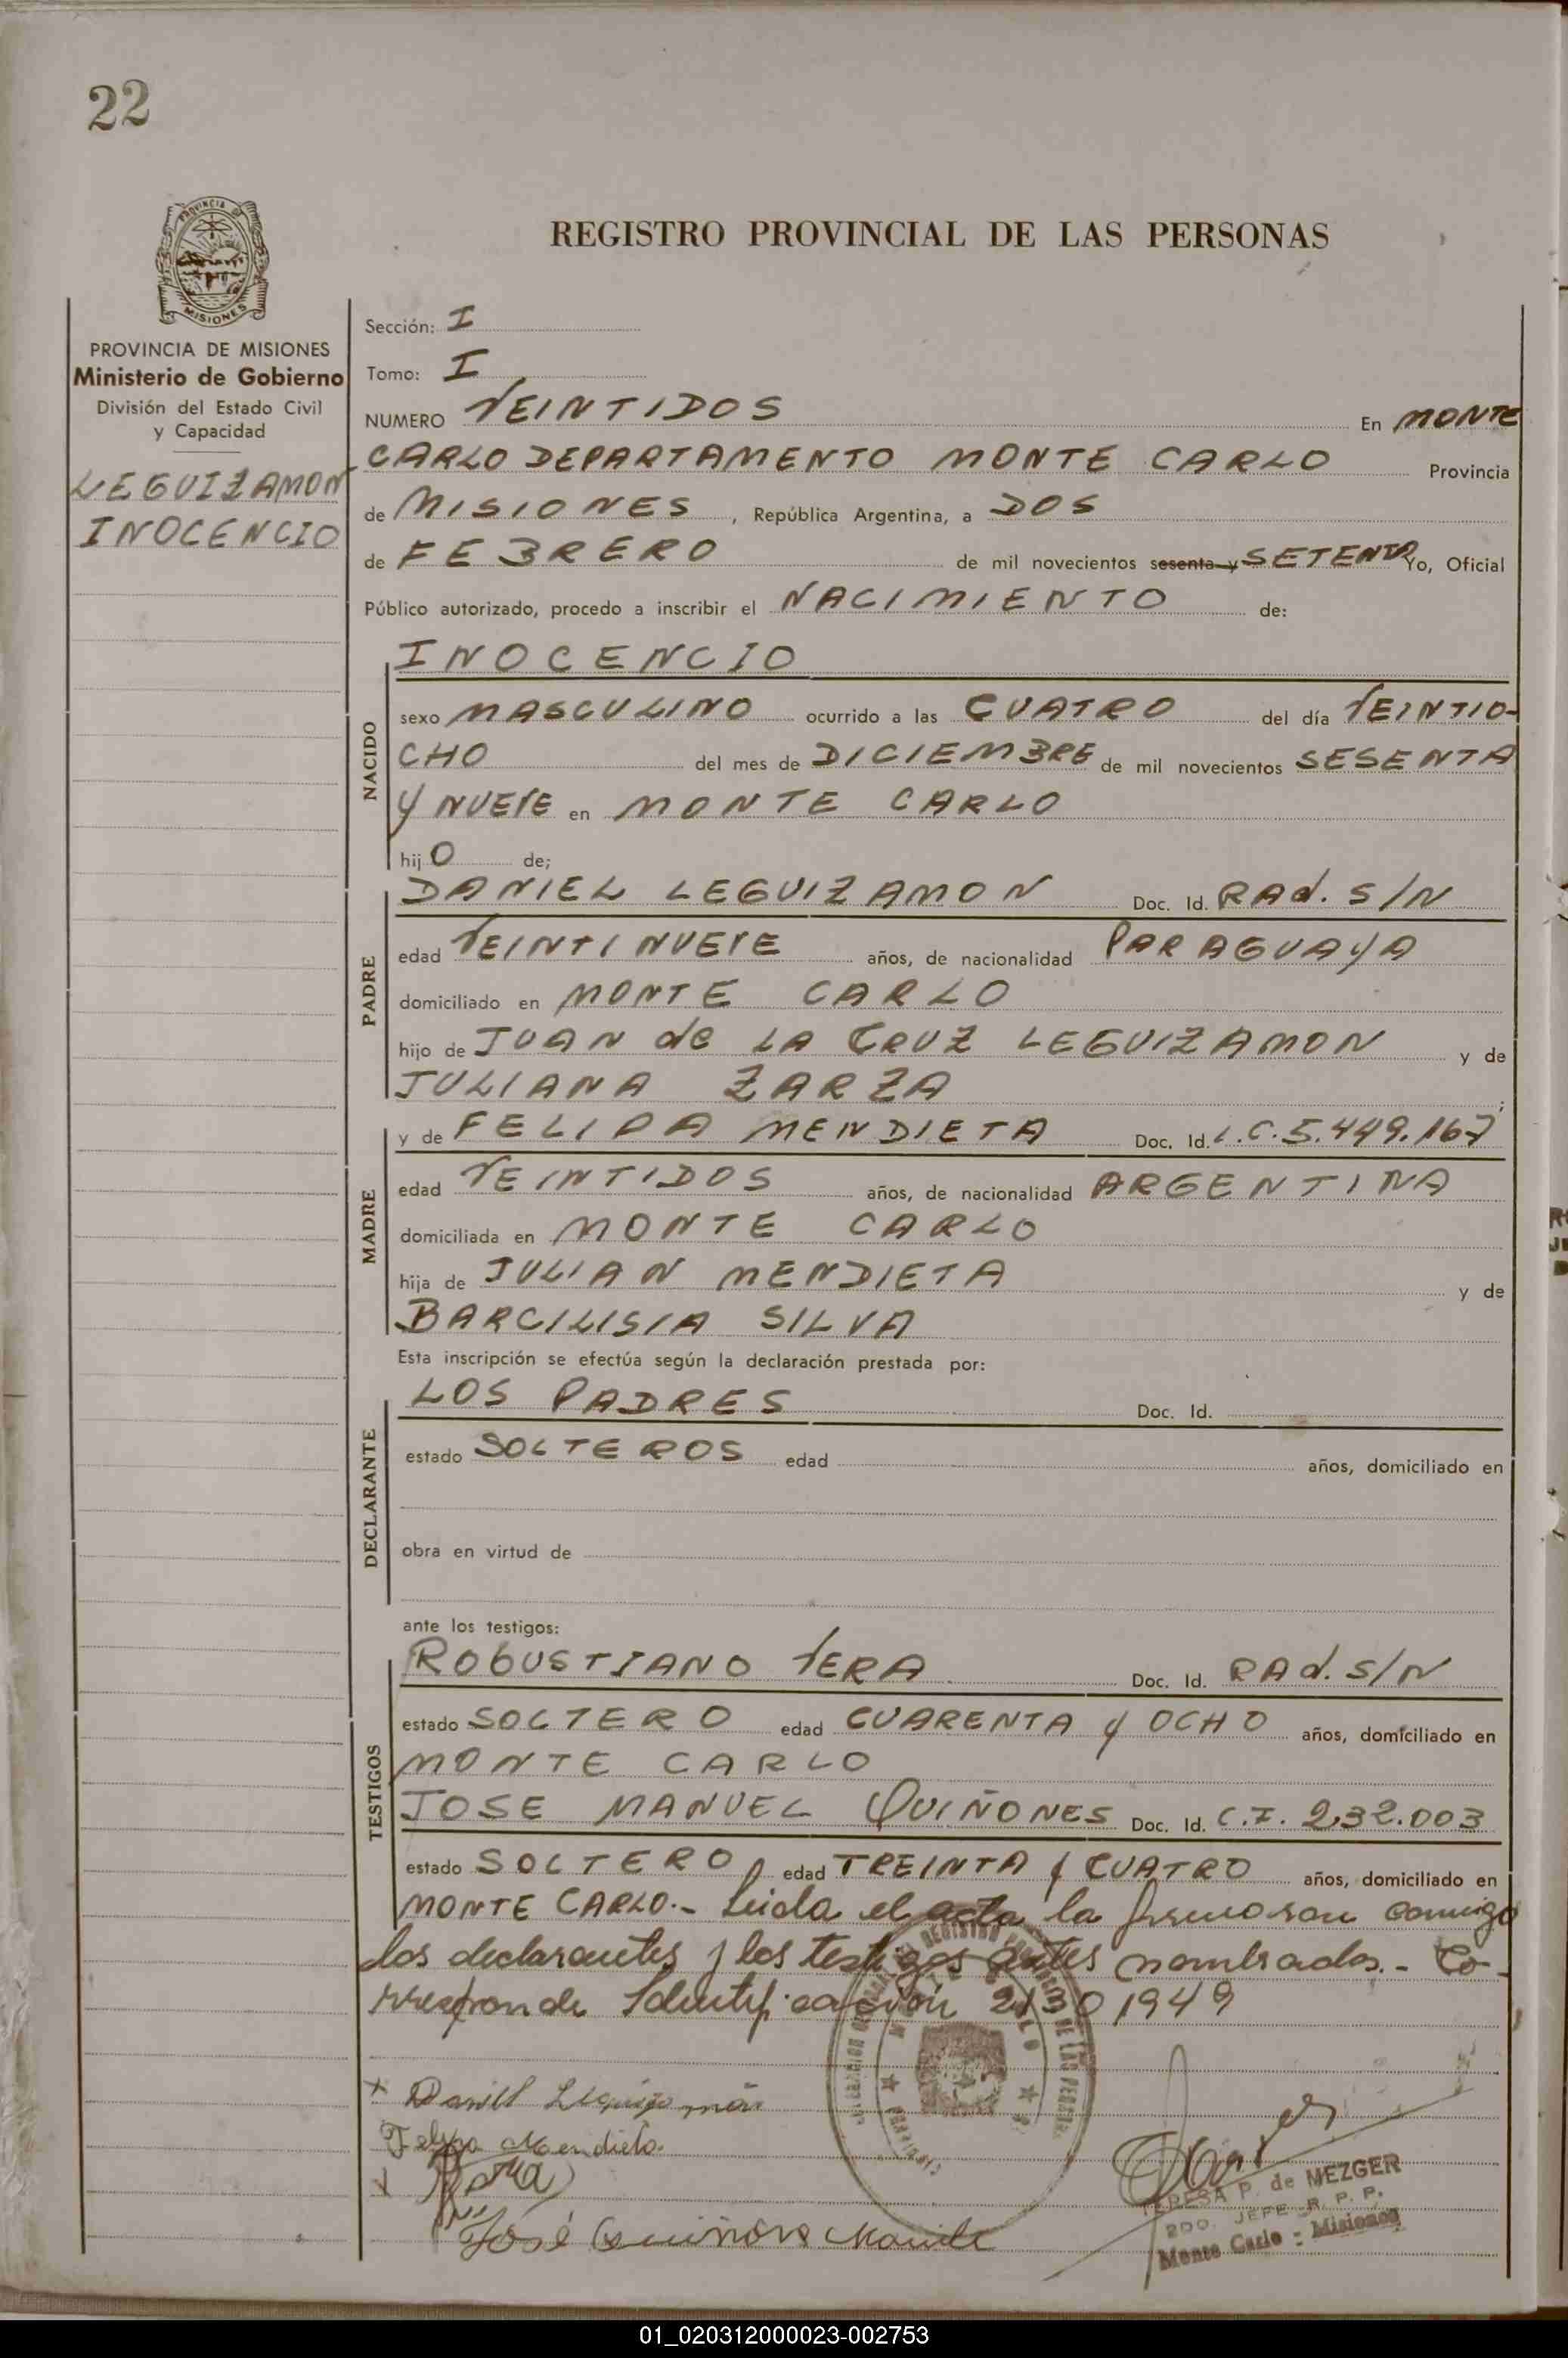 22
REGISTRO PROVINCIAL DE LAS PERSONAS
PROVINCIA DE
MISIONES
PROVINCIA DE MISIONES
Ministerio de Gobierno
División del Estado Civil
y Capacidad
LEGUIZAMON
INOCENCIO
Sección: I
Tomo: I
NUMERO VEINTIDOS En MONTE
CARLO DEPARTAMENTO MONTE CARLO Provincia
de MISIONES, República Argentina, a DOS
de FEBRERO de mil novecientos sesenta y SETENTA Yo, Oficial
Público autorizado, procedo a inscribir el NACIMIENTO de:
INOCENCIO
NACIDO
sexo MASCULINO ocurrido a las CUATRO del día VEINTIO-
CHO del mes de DICIEMBRE de mil novecientos SESENTA
Y NUEVE en MONTE CARLO
hijO de;
PADRE
DANIEL LEGUIZAMON Doc. Id. RAd. S/N
edad VEINTINUEVE años, de nacionalidad PARAGUAYA
domiciliado en MONTE CARLO
hijo de JUAN de LA CRUZ LEGUIZAMON y de
JULIANA ZARZA;
MADRE
y de FELIPA MENDIETA Doc. Id. L.C. 5.449.167
edad VEINTIDOS años, de nacionalidad ARGENTINA
domiciliada en MONTE CARLO
hija de JULIAN MENDIETA y de
BARCILISIA SILVA
Esta inscripción se efectúa según la declaración prestada por:
DECLARANTE
LOS PADRES Doc. Id.
estado SOLTEROS edad años, domiciliado en
obra en virtud de
ante los testigos:
TESTIGOS
ROBUSTIANO VERA Doc. Id. RAd. S/N
estado SOLTERO edad CUARENTA y OCHO años, domiciliado en
MONTE CARLO
JOSE MANUEL QUIÑONES Doc. Id. C.I. 232.003
estado SOLTERO, edad TREINTA y CUATRO años, domiciliado en
MONTE CARLO.- Leida el acta la firmaron conmigo
los declarantes y los testigos antes nombrados.- Co-
rresponde Identificación 21301949
x Daniel Leguizamón
Felipa Mendieta
José Quiñone Manuel
TERESA P. de MEZGER
2DO. JEFE R. P. P.
Monte Carlo - Misiones
01_020312000023-002753